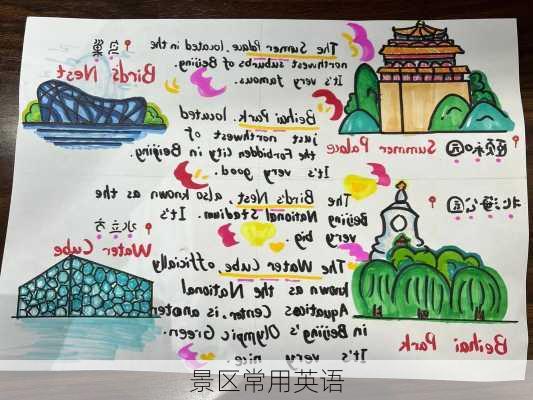 鸟巢
Bird's Nest
The Summer Palace, located in the
northwest suburbs of Beijing.
It's very famous.
颐和园
Summer Palace
Beihai Park, located
just northwest of
the Forbidden City in Beijing
It's very good.
The Bird's Nest, also known as the
Beijing National Stadium. It's
very big.
北海公园
Beihai Park
水立方
Water Cube
The Water Cube officially
known as the National
Aquatics Center, is
in Beijing's Olympic Green.
It's very nice.
景区常用英语